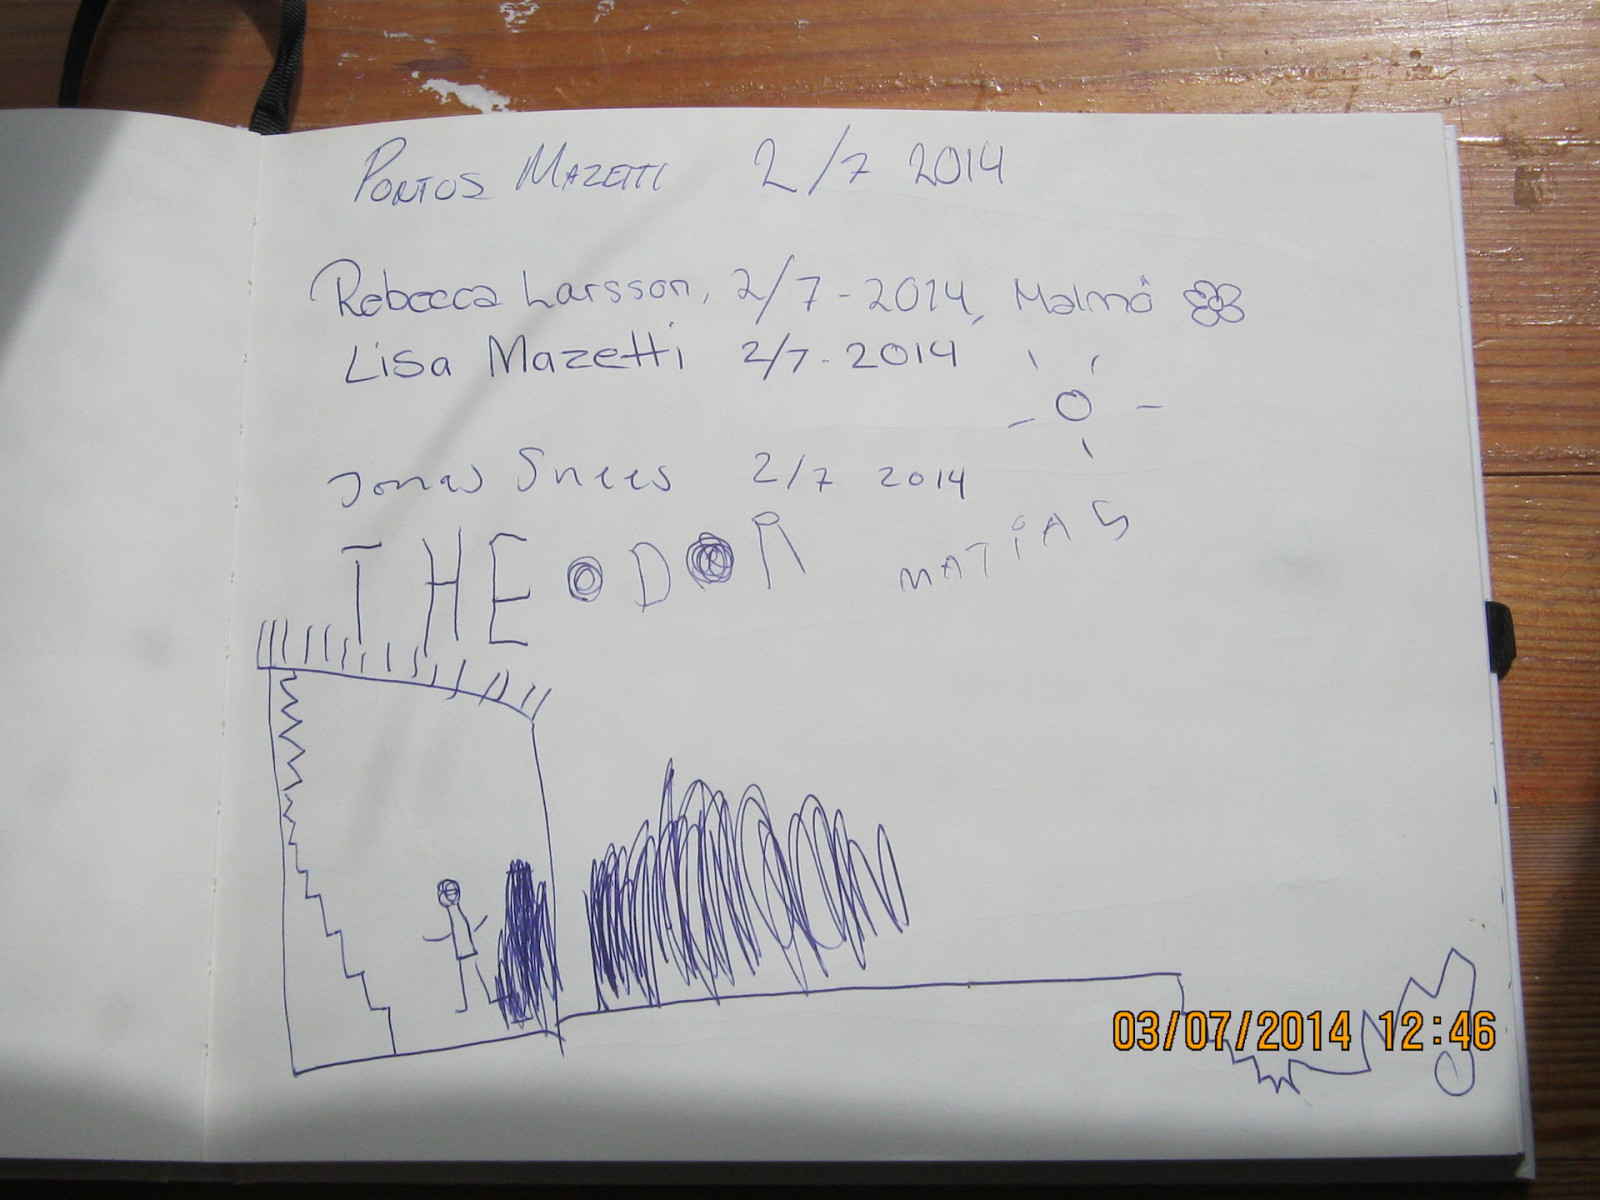 PONTUS MAZETTI 2/7 2014
Rebecca Larsson, 2/7-2014, Malmö
Lisa Mazetti 2/7-2014
Jonas 2/7 2014
THEODOR MATiAS
03/07/2014 12:46